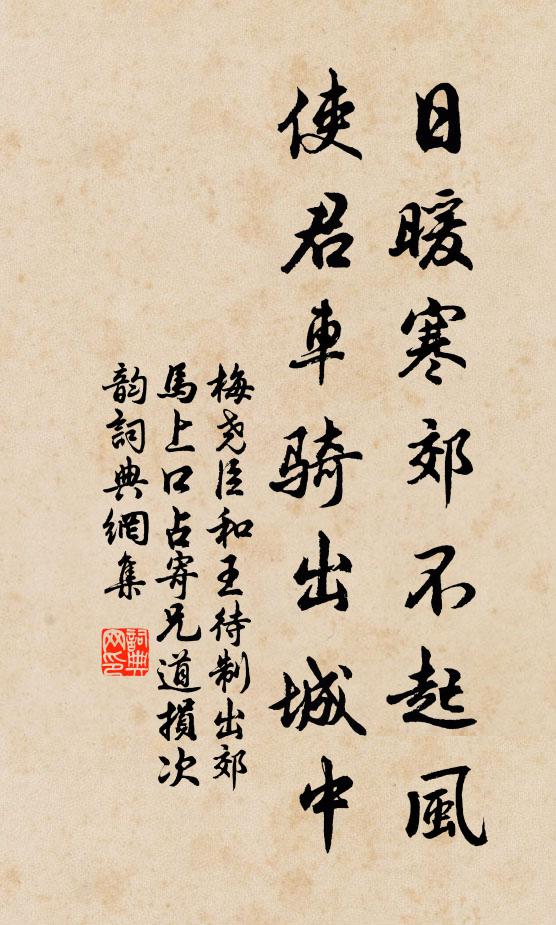 日暖寒郊不起風
使君車騎出城中
梅堯臣和王待制出郊
馬上口占寄兄道損次
韵詞典網集
詞典网印